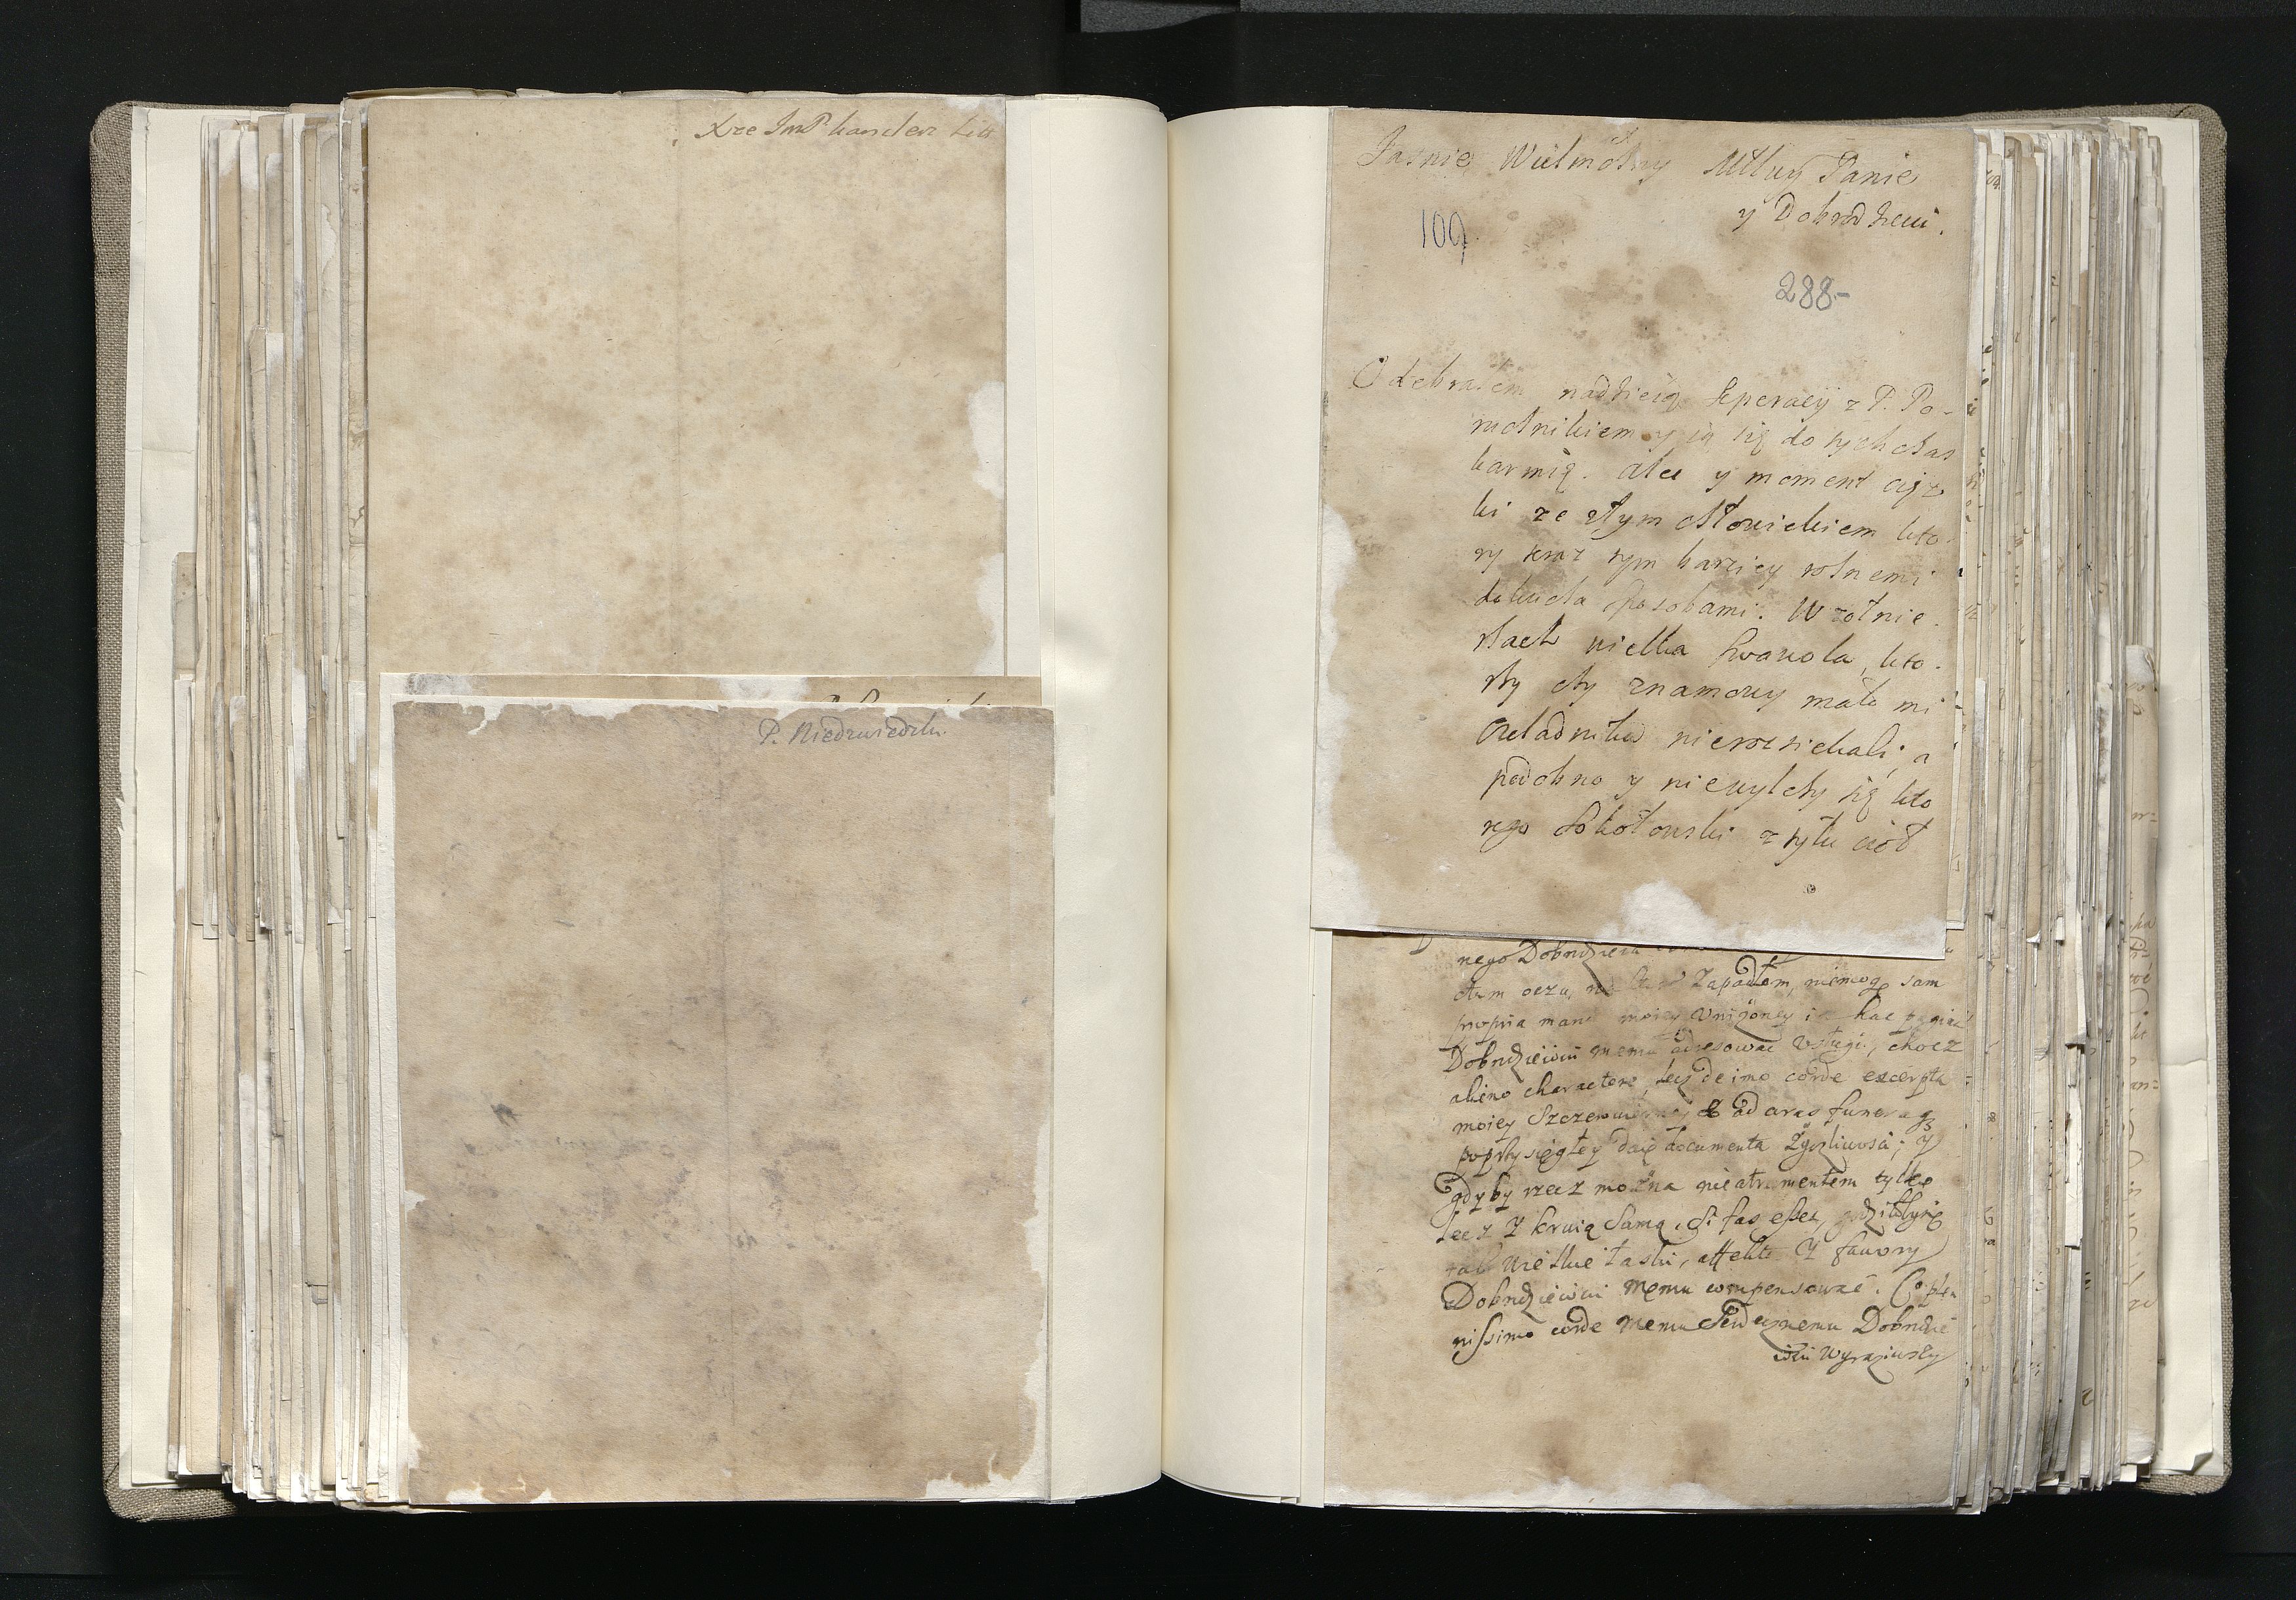 Xze JmP kanclerz Litt
P. Niedzwiedzki.
Jasnie Wielmożny Młwy Panie
y Dobrodzieiu.
109
288-
Odebrałem nadzieię seperacij z P. Po-
rucznikiem y ią się do tych czas
karmię. ałee y moment cięz
ki ze złym człowiekiem kto-
ry teraz tym barziey rożnemi
dokucza sposobami. W żołnie-
rzach wielka swawola, kto-
rzy czy znamowy mało mi
Czeladnika nierozsiekali, a
podobno y niewyleży się kto
rego Sokołowski z tyłu ciął
nego Dobrodzieia
oczu, Zapadłem, niemogę sam
propria manu moiey Uniżoney hac pagina
Dobrodzieiowi memu adresować Usługi, chocz
alieno charactere, lecz de imo corde excerpta
moiey Szczerowierney & ad aras funerаqз
poprzysięgłey daię documenta Zyczliwosci; Y
gdyby rzecz można nieatramentem tylko
lecz Y krwią samą, si fas esset, godziłbysię
tak wielkie łaski, affekta Y fawory
Dobrodzieiowi Memu compensować. Co ple
nissimo corde Memu Serdecznemu Dobrodzie
iowi Wyraziwszy